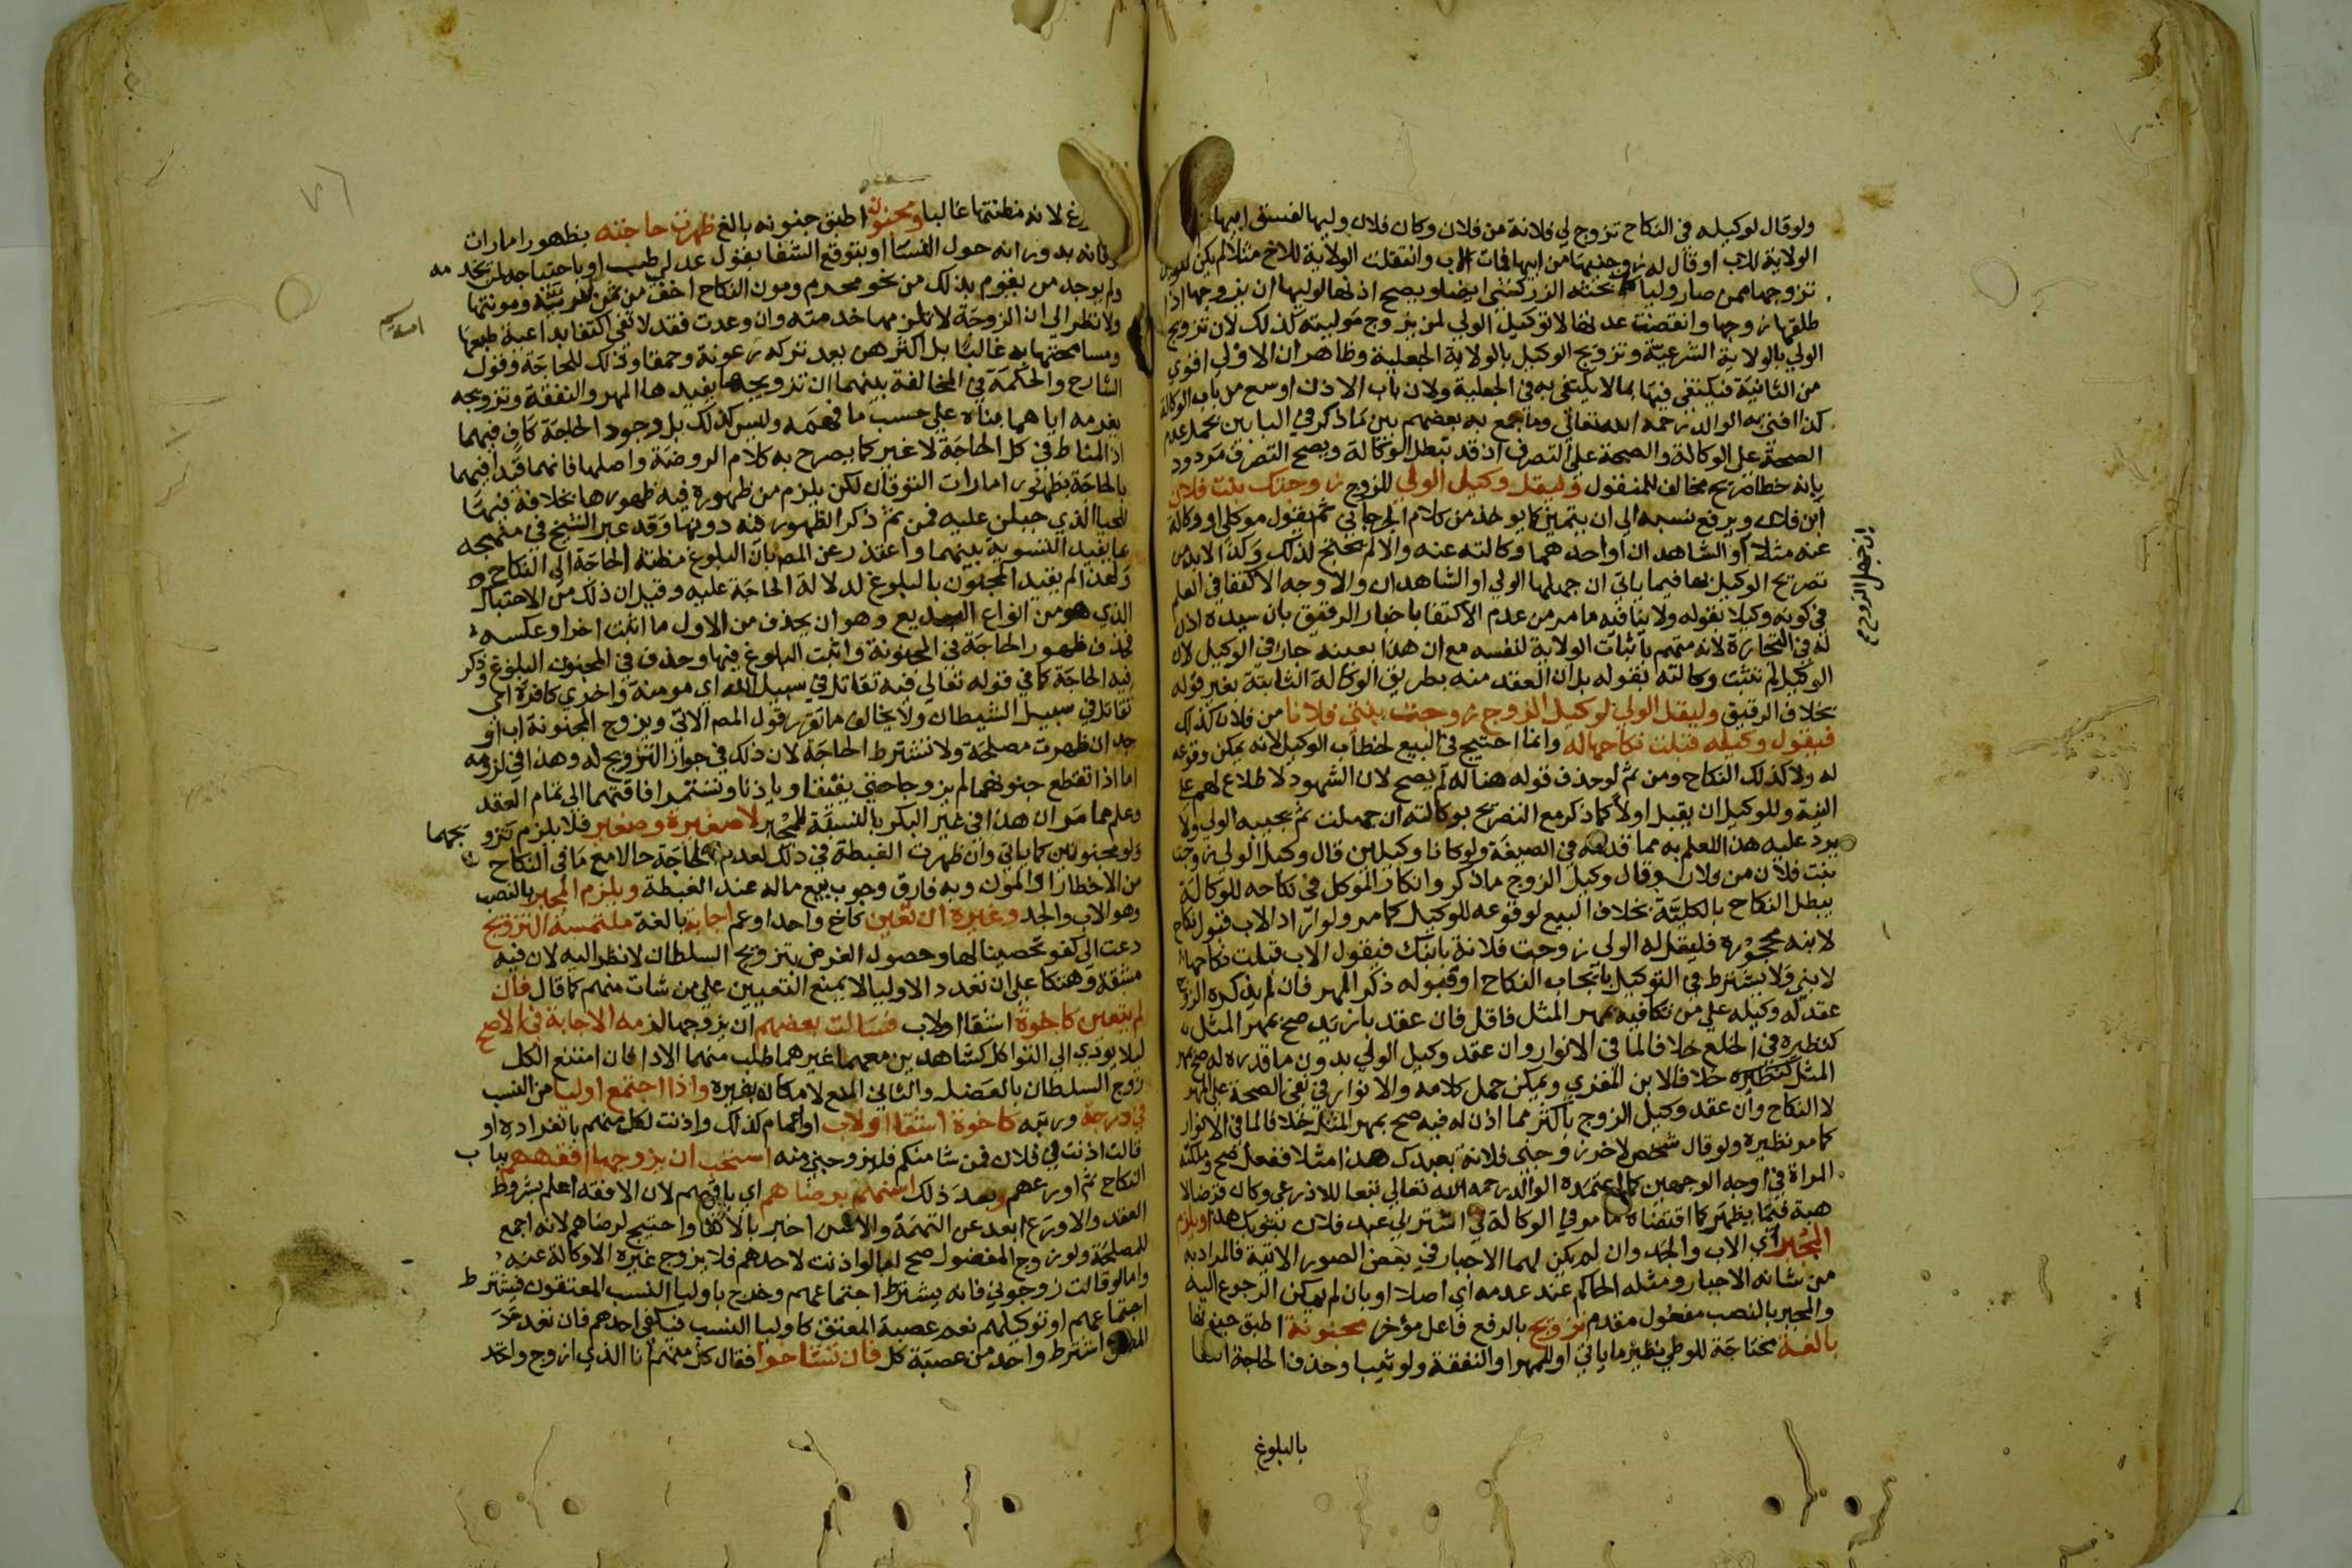 ولو قال لوكيله في النكاح تزوج لي فلانة من فلان وكان فلان وليها لفسق ابيها
الولاية للاب او قال له زوجنيها من ابيها فمات الاب وانتقلت الولاية للاخ مثلا لم يكن للوكيل
تزوجها ممن صار وليا كما بحثه الزركشي ايضا ويصح اذنها لوليها ان يزوجها اذا
طلقها زوجها وانقضت عدتها لا توكيل الولي لمن يزوج موليته كذلك لان تزويج
الولي بالولاية الشرعية وتزويج الوكيل بالولاية الجعلية وظاهر ان الاولى اقوى
من الثانية فيكتفى فيها بما لا يكتفى به في الجعلية ولان باب الاذن اوسع من باب الوكالة
كذا افتى به الوالد رحمه الله تعالى وما جمع به بعضهم بين ما ذكر في البابين بحمل عدم
الصحة على الوكالة والصحة على التصرف اذ قد تبطل الوكالة ويصح التصرف مردود
بانه خطا صريح مخالف للمنقول وليقل وكيل الولي للزوج زوجتك بنت فلان
ابن فلان ويرفع نسبه الى ان يتميز كما يوخذ من كلام الجرجاني ثم يقول موكلي او وكالة
عنه مثلا او الشاهدان او احدهما وكالته عنه والا لم يحتج لذلك وكذا لا بد من
تصريح الوكيل بها فيما ياتي ان جهلها الولي او الشاهدان والاوجه الاكتفا في العلم
ان جهل الزوج صح
في كونه وكيلا بقوله ولا ينافيه ما مر من عدم الاكتفا باخبار الرقيق بان سيده اذن
له في التجارة لانه متهم باثبات الولاية لنفسه مع ان هذا بعينه جار في الوكيل لان
الوكيل لم تثبت وكالته بقوله بل ان العقد منه بطريق الوكالة الثابتة بغير قوله
بخلاف الرقيق وليقل الولي لوكيل الزوج زوجت بنتي فلانا من فلان كذلك
فيقول وكيله قبلت نكاحها له وانما احتيج في البيع لخطاب الوكيل لانه يمكن وقوعه
له ولا كذلك النكاح ومن ثم لو حذف قوله هنا له لم يصح لان الشهود لا اطلاع لهم على
النية وللوكيل ان يقبل اولا كما ذكر مع التصريح بوكالته ان جهلت ثم يجيبه الولي ولا
يرد عليه هذا للعلم به مما قدمه في الصيغة ولو كانا وكيلين قال وكيل الولي زوجت
بنت فلان من فلان وقال وكيل الزوج ما ذكر وانكار الموكل في نكاحه للوكالة
يبطل النكاح بالكلية بخلاف البيع لوقوعه للوكيل كما مر ولو اراد الاب قبول النكاح
لابنه محجوره فليقل له الولي زوجت فلانة بابنك فيقول الاب قبلت نكاحها
لابني ولا يشترط في التوكيل بايجاب النكاح او قبوله ذكر المهر فان لم يذكره الزوج
عقد له وكيله على من تكافيه بمهر المثل فاقل فان عقد بازيد صح بمهر المثل
كنظيره في الخلع خلافا لما في الانوار وان عقد وكيل الولي بدون ما قدره له صح بمهر
المثل كنظيره خلافا لابن المقري ويمكن حمل كلامه والانوار في نفي الصحة على المهر
لا النكاح وان عقد وكيل الزوج باكثر مما اذن له فيه صح بمهر المثل خلافا لما في الانوار
كما مر نظيره ولو قال شخص لاخر زوجني فلانة بعبدك هذا مثلا ففعل صح وملكته
المراة في اوجه الوجهين كما اعتمده الوالد رحمه الله تعالى تبعا للاذرعي وكان قرضا لا
هبة فيما يظهر كما اقتضاه ما مر في الوكالة في اشتر لي عبد فلان بثوبك هذا ويلزم
المجبر اي الاب والجد وان لم يكن لهما الاجبار في بعض الصور الاتية فالمراد به
من شانه الاجبار ومثله الحاكم عند عدمه اي اصلا او بان لم يمكن الرجوع اليه
والمجبر بالنصب مفعول مقدم تزويج بالرفع فاعل مؤخر مجنونة اطبق جنونها
بالغة محتاجة للوطي نظير ما ياتي او للمهر او النفقة ولو ثيبا وحذف الحاجة اكتفا
بالبلوغ
لانه مظنتها غالبا ومجنون اطبق جنونه بالغ ظهرت حاجته بظهور امارات
توقانه بدورانه حول النسا او بتوقع الشفا بقول عدلي طب او باحتياجه لمن يخدمه
ولم يوجد من يقوم بذلك من نحو محرم ومون النكاح اخف من ثمن سرية ومونتها
ولا نظر الى ان الزوجة لا يلزمها خدمته وان وعدت فقد لا تفي اكتفا بداعية طبعها
ومسامحتها به غالبا بل اكثرهن يعد تركه رعونة وحمقا وذلك للحاجة وقول
الشارح والحكمة في المخالفة بينهما ان تزويجها يفيدها المهر والنفقة وتزويجه
يغرمه اياهما بناه على حسب ما فهمه وليس كذلك بل وجود الحاجة كاف فيهما
اذ المناط في كل الحاجة لا غير كما يصرح به كلام الروضة واصلها فانهما قيدا فيهما
بالحاجة بظهور امارات التوقان لكن يلزم من ظهوره فيه ظهورها بخلافه فيها
للحيا الذي جبلن عليه فمن ثم ذكر الظهور فيه دونها وقد عبر الشيخ في منهجه
بما يفيد التسوية بينهما واعتذر عن المص بان البلوغ مظنة الحاجة الى النكاح
ولهذا لم يقيد المجنون بالبلوغ لدلالة الحاجة عليه وقيل ان ذلك من الاحتباك
الذي هو من انواع البديع وهو ان يحذف من الاول ما اثبت اخرا وعكسه
فحذف ظهور الحاجة في المجنونة واثبت البلوغ فيها وحذف في المجنون البلوغ وذكر
فيه الحاجة كما في قوله تعالى فيه تقاتل في سبيل الله اي مومنة واخرى كافرة اي
تقاتل في سبيل الشيطان ولا يخالف ما تقرر قول المص الاتي ويزوج المجنونة اب او
جد ان ظهرت مصلحة ولا تشترط الحاجة لان ذلك في جواز التزويج له وهذا في لزومه
اما اذا تقطع جنونهما لم يزوجا حتى يفيقا وياذنا وتستمر افاقتهما الى تمام العقد
وعلم مما مر ان هذا في غير البكر بالنسبة للمجبر لا صغيرة وصغير فلا يلزم تزويجهما
ولو مجنونين كما ياتي وان ظهرت الغبطة في ذلك لعدم الحاجة حالا مع ما في النكاح
من الاخطار او المون وبه فارق وجوب بيع ماله عند الغبطة ويلزم المجبر بالنصب
وهو الاب والجد وغيره ان تعين كاخ واحد او عم اجابة بالغة ملتمسة التزويج
دعت الى كفو تحصينا لها وحصول الغرض بتزويج السلطان لا نظر اليه لان فيه
مشقة وهتكا على ان تعدد الاوليا لا يمنع التعيين على من شات منهم كما قال فان
لم يتعين كاخوة اشقا او لاب فسالت بعضهم ان يزوجها لزمه الاجابة في الاصح
ليلا يودي الى التواكل كشاهدين معهما غيرهما طلب منهما الادا فان امتنع الكل
زوج السلطان بالعضل والثاني المنع لامكانه بغيره واذا اجتمع اوليا من النسب
في درجة ورتبة كاخوة اشقا او لاب او اعمام كذلك واذنت لكل منهم بانفراده او
قالت اذنت في فلان فمن شا منكم فليزوجني منه استحب ان يزوجها افقههم بباب
النكاح ثم اورعهم وبعد ذلك اسنهم برضاهم اي باقيهم لان الافقه اعلم بشروط
العقد والاورع ابعد عن التهمة والاسن اخبر بالاكفا واحتيج لرضاهم لانه اجمع
للمصلحة ولو زوج المفضول صح اما لو اذنت لاحدهم فلا يزوج غيره الا وكالة عنه
واما لو قالت زوجوني فانه يشترط اجتماعهم وخرج باوليا النسب المعتقون فيشترط
اجتماعهم او توكيلهم نعم عصبة المعتق كاوليا النسب فيكفي احدهم فان تعدد
المعتق اشترط واحد من عصبة كل فان تشاحوا فقال كل منهم انا الذي ازوج واتحد